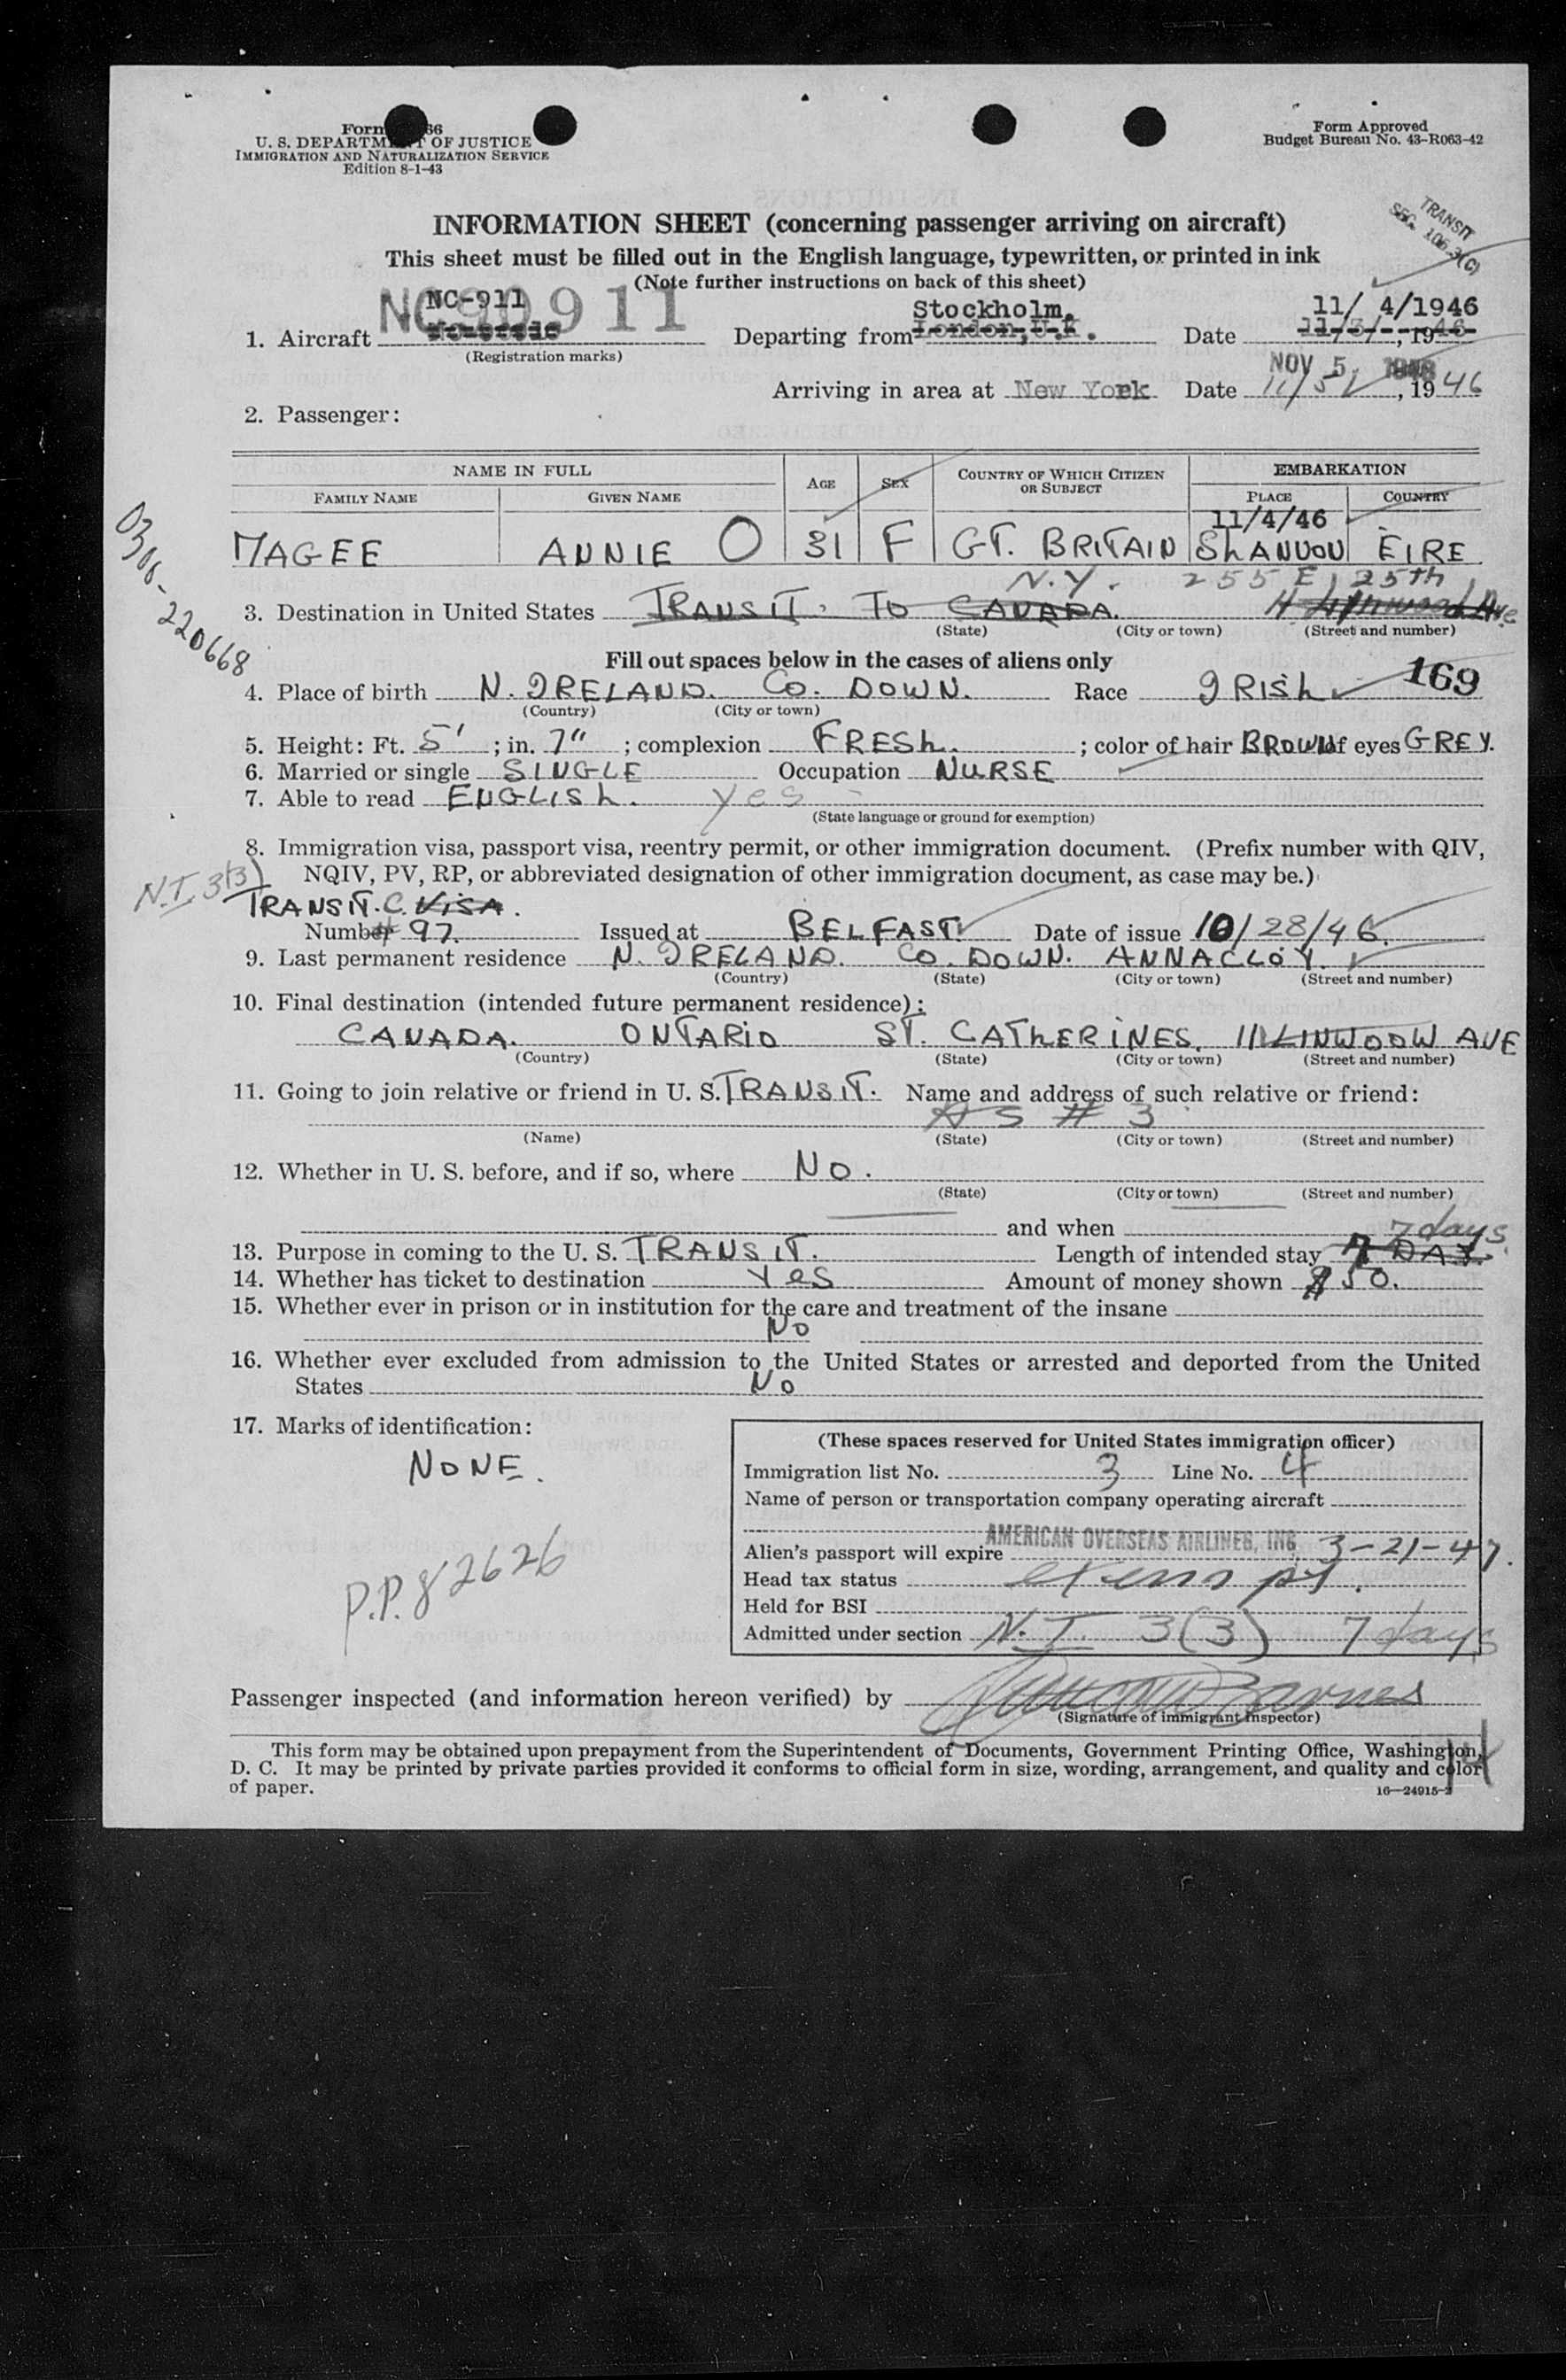 Form 66
U. S. DEPARTMENT OF JUSTICE
IMMIGRATION AND NATURALIZATION SERVICE
Edition 8-1-43
Form Approved
Budget Bureau No. 43-R063-42
INFORMATION SHEET (concerning passenger arriving on aircraft)
TRANSIT
SEC. 106.3(C)
This sheet must be filled out in the English language, typewritten, or printed in ink
(Note further instructions on back of this sheet)
NC90911
NC-911 Stockholm, 11/ 4/1946
1. Aircraft Departing from London, U.K. Date 11/3/ , 19 46
(Registration marks)
NOV 5 1946
Arriving in area at New York Date 11/5/ , 19 46
2. Passenger:
NAME IN FULL AGE SEX COUNTRY OF WHICH CITIZEN OR SUBJECT EMBARKATION
FAMILY NAME GIVEN NAME PLACE COUNTRY
11/4/46
MAGEE ANNIE O 31 F GT. BRITAIN SHANNON EIRE
0300-220668
N.Y. 255 E 25th
3. Destination in United States TRANSIT. TO CANADA. Ave
(State) (City or town) (Street and number)
Fill out spaces below in the cases of aliens only
4. Place of birth N. IRELAND. CO. DOWN. Race IRISH 169
(Country) (City or town)
5. Height: Ft. 5' ; in. 7" ; complexion FRESH. ; color of hair BROWN of eyes GREY.
6. Married or single SINGLE Occupation NURSE
7. Able to read ENGLISH. Yes
(State language or ground for exemption)
8. Immigration visa, passport visa, reentry permit, or other immigration document. (Prefix number with QIV,
NQIV, PV, RP, or abbreviated designation of other immigration document, as case may be.)
N.I. 3(3)
TRANSIT. C. VISA.
Number # 97. Issued at BELFAST. Date of issue 10/28/46.
9. Last permanent residence N. IRELAND. CO. DOWN. ANNACLOY.
(Country) (State) (City or town) (Street and number)
10. Final destination (intended future permanent residence):
CANADA. ONTARIO ST. CATHERINES. 111 LINWOOW AVE
(Country) (State) (City or town) (Street and number)
11. Going to join relative or friend in U. S. TRANSIT. Name and address of such relative or friend:
AS # 3
(Name) (State) (City or town) (Street and number)
12. Whether in U. S. before, and if so, where NO.
(State) (City or town) (Street and number)
and when
7 days
13. Purpose in coming to the U. S. TRANSIT. Length of intended stay DAY.
14. Whether has ticket to destination Yes Amount of money shown $50.
15. Whether ever in prison or in institution for the care and treatment of the insane
NO
16. Whether ever excluded from admission to the United States or arrested and deported from the United
States NO
17. Marks of identification:
NONE.
P.P. 82626
(These spaces reserved for United States immigration officer)
Immigration list No. 3 Line No. 4
Name of person or transportation company operating aircraft
AMERICAN OVERSEAS AIRLINES, INC.
Alien's passport will expire 3-21-47.
Head tax status exempt.
Held for BSI
Admitted under section N.I. 3(3) 7 days
Passenger inspected (and information hereon verified) by Barnes
(Signature of immigrant inspector)
This form may be obtained upon prepayment from the Superintendent of Documents, Government Printing Office, Washington,
D. C. It may be printed by private parties provided it conforms to official form in size, wording, arrangement, and quality and color
of paper.
16—24915-2
14